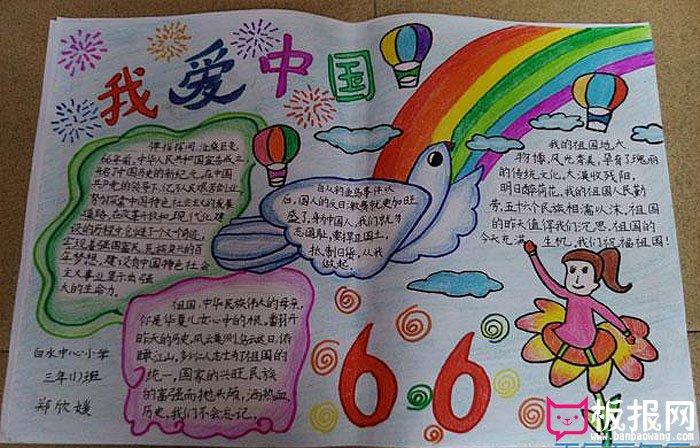 我爱中国
弹指挥间,沧桑巨变。
66年前,中华人民共和国宣告成立
开启了中国历史的新纪元,在中国
共产党的领导下,亿万人民艰苦创业,
努力探索中国特色社会主义的发展
道路,在改革开放和现代化建
设的历程中创造了一个又一个奇迹,
实现着强国富民、民族复兴的百
年梦想,建设有中国特色社会
主义事业显示出强
大的生命力。
自从钓鱼岛事件以
后,国人的反日激情就更加旺
盛了,身为中国人,我们就为
志国耻,索押正国土,
抵制日货,从我
做起。
我的祖国地大
物博,风光秀美,孕育了瑰丽
的传统文化,大漠收残阳,
明日醉荷花,我的祖国人民勤
劳,五十六个民族相濡以沫,祖国
的昨天值得我们沉思,祖国的
今天充满生机,我们祝福祖国!
祖国,中华民族伟大的母亲,
你是华夏儿女心中的根。翻开
昨天的历史,
江山,多少仁人志士为了祖国的
统一,国家的兴旺民族
的富强而抛头颅,洒热血
历史,我们不会忘记。
白水中心小学
三年(1)班
郑欣媛
66
板报网
www.banbaowang.com